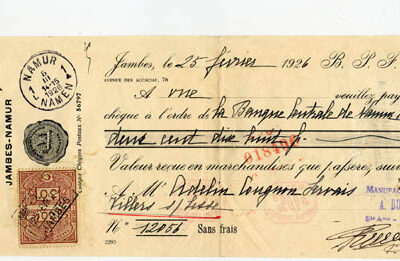 NAMUR 1
8
III
1926
1 NAMEN
JAMBES-NAMUR
Compte Chèques Postaux Nº 56797
Jambes, le 25 février 1926 B. P. F.
AVENUE DES ACACIAS, 78
A vue veuillez pay
chèque à l'ordre de la Banque Centrale de Namur
deux cent dix huit f.
018496
Valeur reçue en marchandises que passerez suiv
à Mr Adelin Servais
Villers s/ Lesse
Nº 12056 Sans frais
MANUFAC
2295